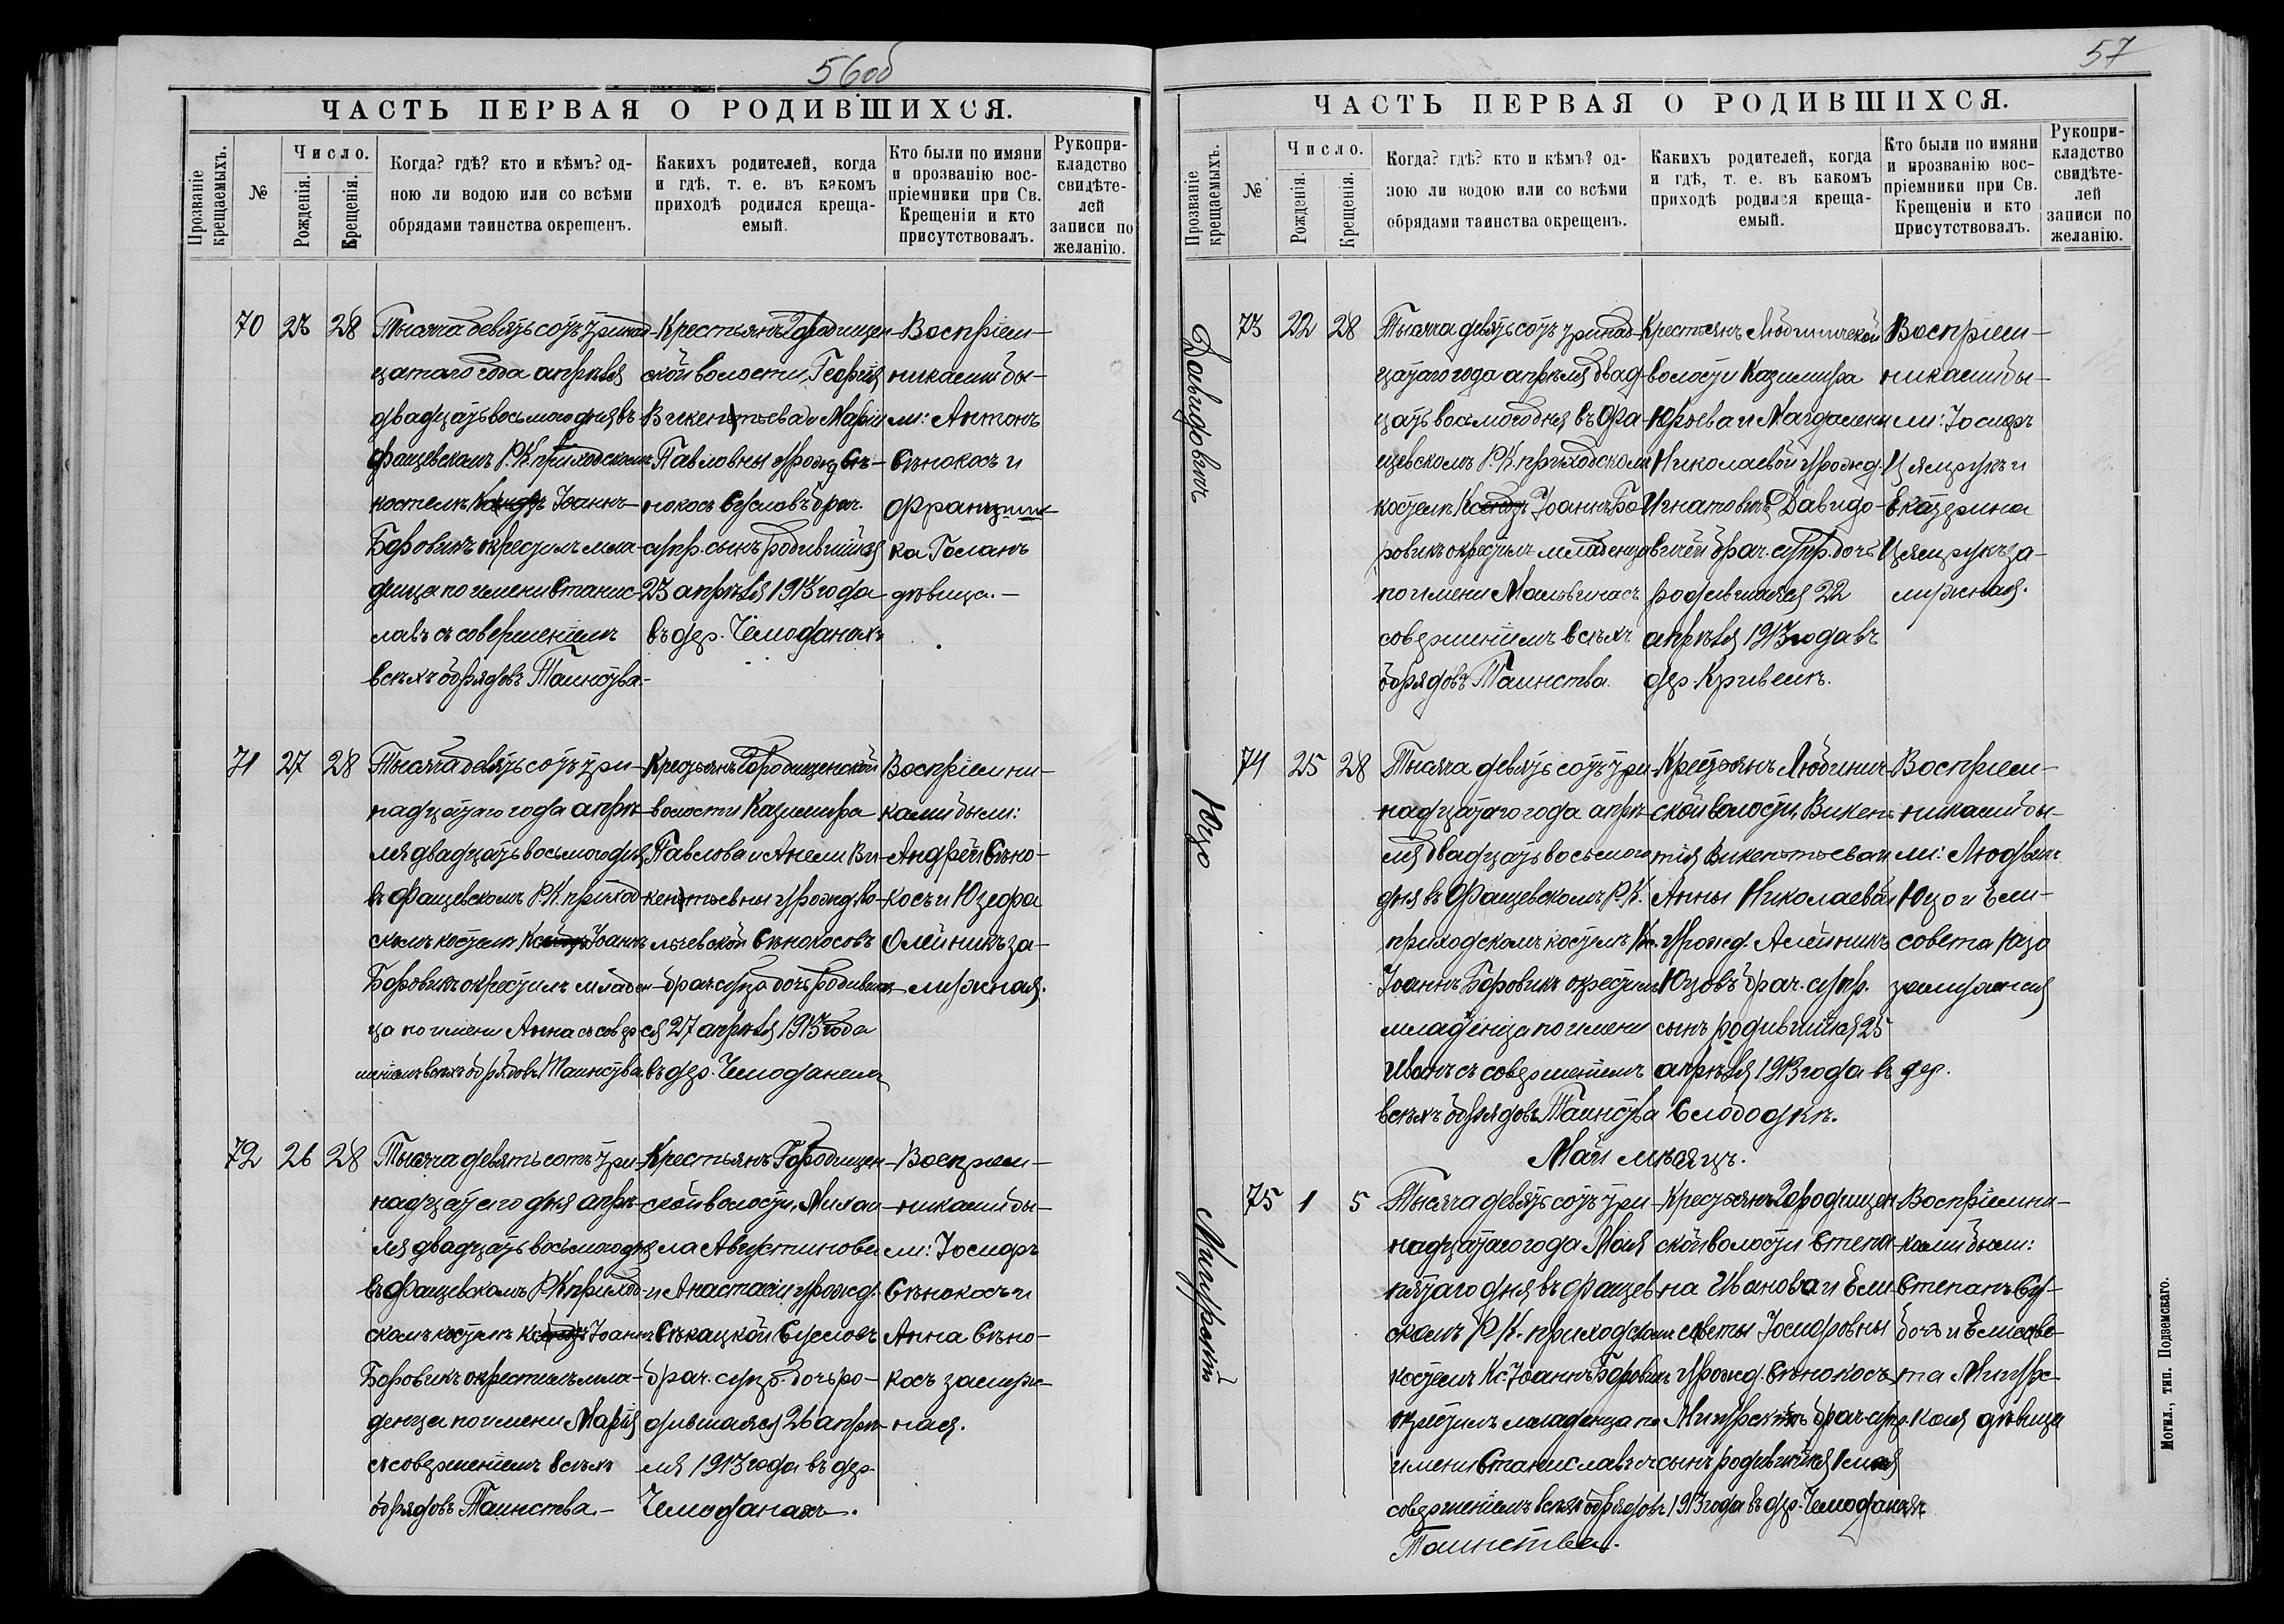 56об
ЧАСТЬ ПЕРВАЯ О РОДИВШИХСЯ.
Прозваніе крещаемыхъ.
№
Число.
Рожденія.
Крещенія.
Когда? гдѣ? кто и кѣмъ? од-
ною ли водою или со всѣми
обрядами таинства окрещенъ.
Какихъ родителей, когда
и гдѣ, т. е. въ какомъ
приходѣ родился креща-
емый.
Кто были по имяни
и прозванію вос-
пріемники при Св.
Крещеніи и кто
присутствовалъ.
Рукопри-
кладство
свидѣте-
лей
записи по
желанію.
70 23 28
Тысяча девятьсотъ тринад-
цатаго года апрѣля
двадцать восьмого дня въ
Фащевскомъ Р.К. приходскомъ
костелѣ Ксендзъ Іоаннъ
Боровикъ окрестилъ мла-
денца по имени Станис-
лавъ съ совершеніемъ
всѣхъ обрядовъ Таинства.
Крестьянъ Городищен-
ской волости, Георгія
Викентьева и Маріи
Павловны урожд. Сѣ-
нокосъ Сусловъ брач.
супр. сынъ родившійся
23 апрѣля 1913 года
въ дер. Чемоданахъ
Воспріем-
никами бы-
ли: Антонъ
Сѣнокосъ и
Францишк-
ка Голанъ
дѣвица.
71 27 28
Тысяча девятьсотъ три-
надцатаго года апрѣ-
ля двадцать восьмого дня
въ Фащевскомъ Р.К. приход-
скомъ костелѣ Ксендзъ Іоаннъ
Боровикъ окрестилъ младен-
ца по имени Анна съ совер-
шеніемъ всѣхъ обрядовъ Таинства
Крестьянъ Городищенской
волости Казимира
Павлова и Анели Ви-
кентьевны урожд. Ко-
левской Сѣнокосовъ
брач. супр. дочь родивша-
ся 27 апрѣля 1913 года
въ дер. Чемоданахъ
Воспріемни-
ками были:
Андрей Сѣно-
косъ и Юзефа
Олейникъ за-
мужная.
72 26 28
Тысяча девятьсотъ три-
надцатаго дня апрѣ-
ля двадцать восьмого дня
въ Фащевскомъ Р.К. приход-
скомъ костелѣ Ксендзъ Іоаннъ
Боровикъ окрестилъ мла-
денца по имени Марія
съ совершеніемъ всѣхъ
обрядовъ Таинства.
Крестьянъ Городищен-
ской волости, Михаи-
ла Августинова
и Анастасіи урожд.
Сѣкацкой Сусловъ
брач. супр. дочь ро-
дившаяся 26 апрѣ-
ля 1913 года въ дер.
Чемоданахъ.
Воспріем-
никами бы-
ли: Іосифъ
Сѣнокосъ и
Анна Сѣно-
косъ замуж-
ная.
57
ЧАСТЬ ПЕРВАЯ О РОДИВШИХСЯ.
Прозваніе крещаемыхъ.
№
Число.
Рожденія.
Крещенія.
Когда? гдѣ? кто и кѣмъ? од-
ною ли водою или со всѣми
обрядами таинства окрещенъ.
Какихъ родителей, когда
и гдѣ, т. е. въ какомъ
приходѣ родился креща-
емый.
Кто были по имяни
и прозванію вос-
пріемники при Св.
Крещеніи и кто
присутствовалъ.
Рукопри-
кладство
свидѣте-
лей
записи по
желанію.
Давидовичъ
73 22 28
Тысяча девятьсотъ тринад-
цатаго года апрѣля двад-
цать восьмого дня въ Фа-
щевскомъ Р.К. приходскомъ
костелѣ Ксендзъ Іоаннъ Бо-
ровикъ окрестилъ младенца
по имени Мальвина съ
совершеніемъ всѣхъ
обрядовъ Таинства.
Крестьянъ Любиничской
волости Казимира
Юрьева и Магдалены
Николаевой урожд.
Игнатовичъ Давидо-
вичей брач. супр. дочь
родившаяся 22
апрѣля 1913 года въ
дер. Кривелѣ.
Воспріем-
никами бы-
ли: Іосифъ
и
Екатерина
за-
мужная.
Юцо
74 25 28
Тысяча девятьсотъ три-
надцатаго года апрѣ-
ля двадцать восьмого
дня въ Фащевскомъ Р.К.
приходскомъ костелѣ Кс.
Іоаннъ Боровикъ окрестилъ
младенца по имени
Иванъ съ совершеніемъ
всѣхъ обрядовъ Таинства
Крестьянъ Любинич-
ской волости, Викен-
тія Викентьева и
Анны Николаевой
урожд. Алейникъ
Юцовъ брач. супр.
сынъ родившійся 25
апрѣля 1913 года въ дер.
Слободкѣ.
Воспріем-
никами бы-
ли: Людвикъ
Юцо и Ели-
савета Юцо
замужная
Май мѣсяцъ.
Мигурскій
75 1 5
Тысяча девятьсотъ три-
надцатаго года Мая
пятаго дня въ Фащев-
скомъ Р.К. приходскомъ
костелѣ Кс. Іоаннъ Боровикъ
окрестилъ младенца по
имени Станиславъ съ
совершеніемъ всѣхъ обрядовъ
Таинства.
Крестьянъ Городищен-
ской волости Степа-
на Иванова и Ели-
саветы Іосифовны
урожд. Сѣнокосъ
Мигурскихъ брач. супр.
сынъ родившійся 1 мая
1913 года въ дер. Чемоданахъ
Воспріемни-
ками были:
Степанъ Су-
бочъ и Елисаве-
та Мигурс-
кая дѣвица
Могил., тип. Подземскаго.